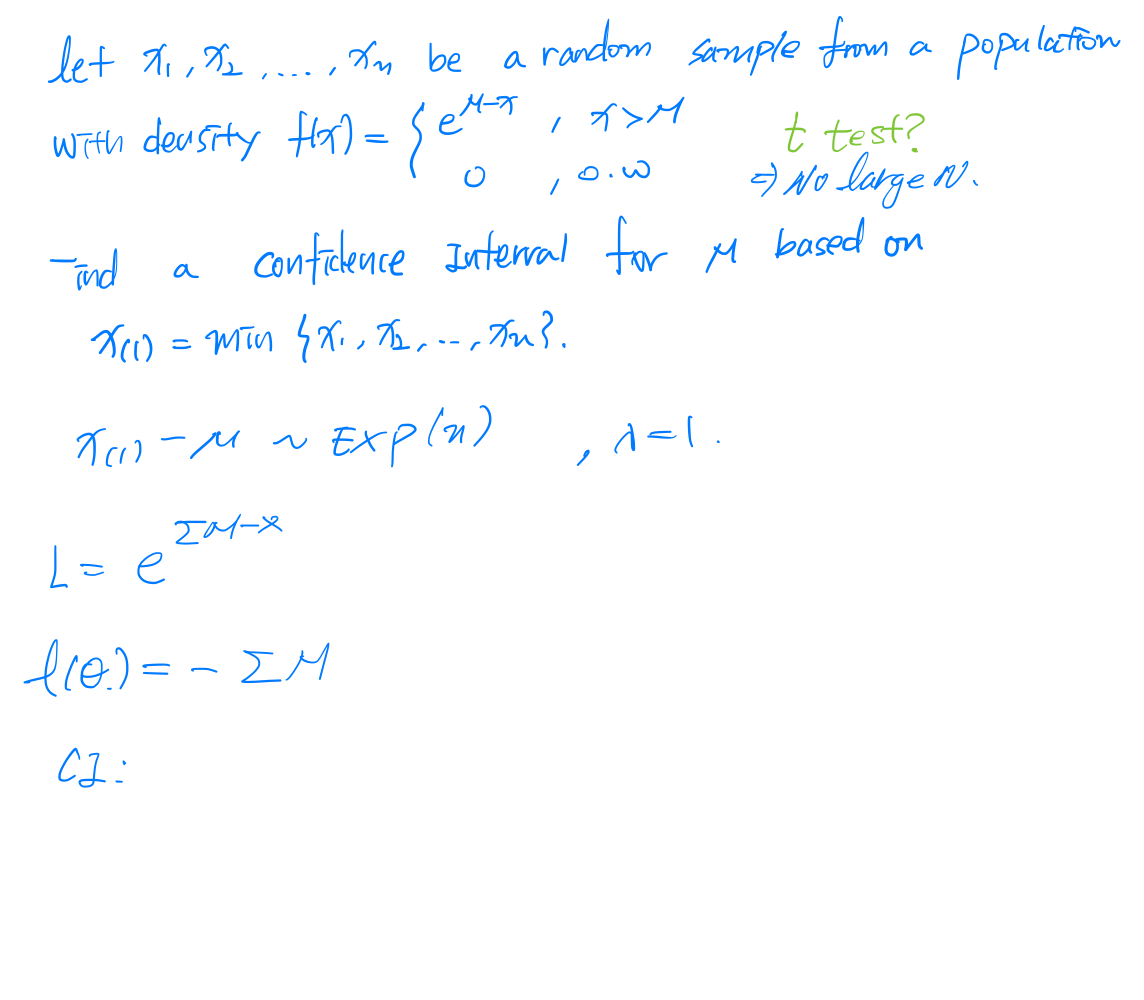 let x₁, x₂, ..., xₙ be a random sample from a population
with density f(x) = { e^{μ-x} , x>μ
0 , o.w
t test?
⇒ No large N.
Find a confidence Interval for μ based on
x₍₁₎ = min {x₁, x₂, ..., xₙ}.
x₍₁₎ - μ ~ EXP(n) , λ=1.
L = e^{Σμ-x}
l(θ.) = - Σμ
CI: